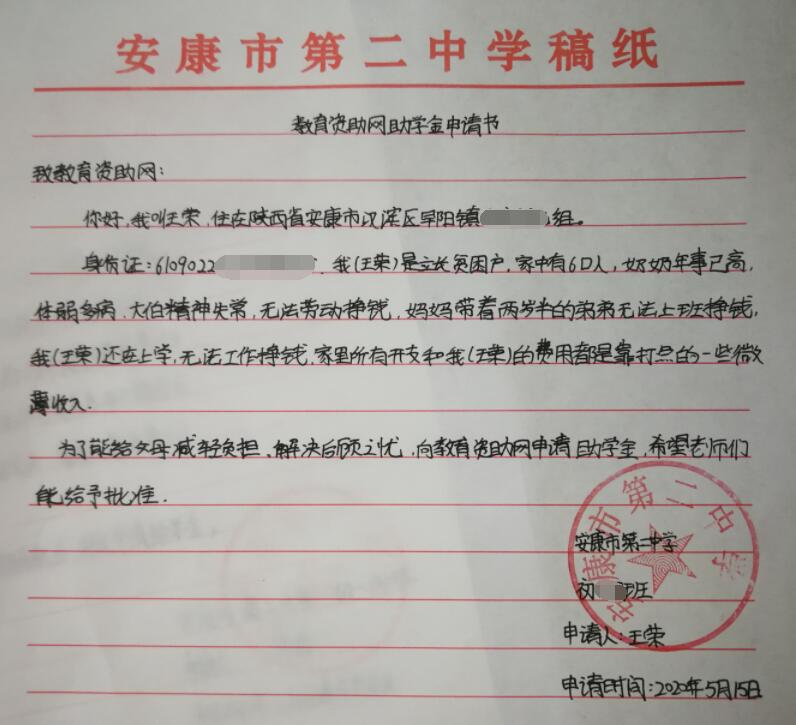 安康市第二中学稿纸
教育资助网助学金申请书
致教育资助网：
你好，我叫王荣，住在陕西省安康市汉滨区早阳镇组。
身份证：6109022 我(王荣)是立卡贫困户，家中有6口人，奶奶年事已高，
体弱多病，大伯精神失常，无法劳动挣钱，妈妈带着两岁半的弟弟无法上班挣钱，
我(王荣)还在上学，无法工作挣钱，家里所有开支和我(王荣)的费用都是靠打点的一些微
薄收入.
为了能给父母减轻负担，解决后顾之忧，向教育资助网申请助学金，希望老师们
能给予批准.
安康市第二中学
安康市第二中学
初班
申请人：王荣
申请时间：2020年5月15日